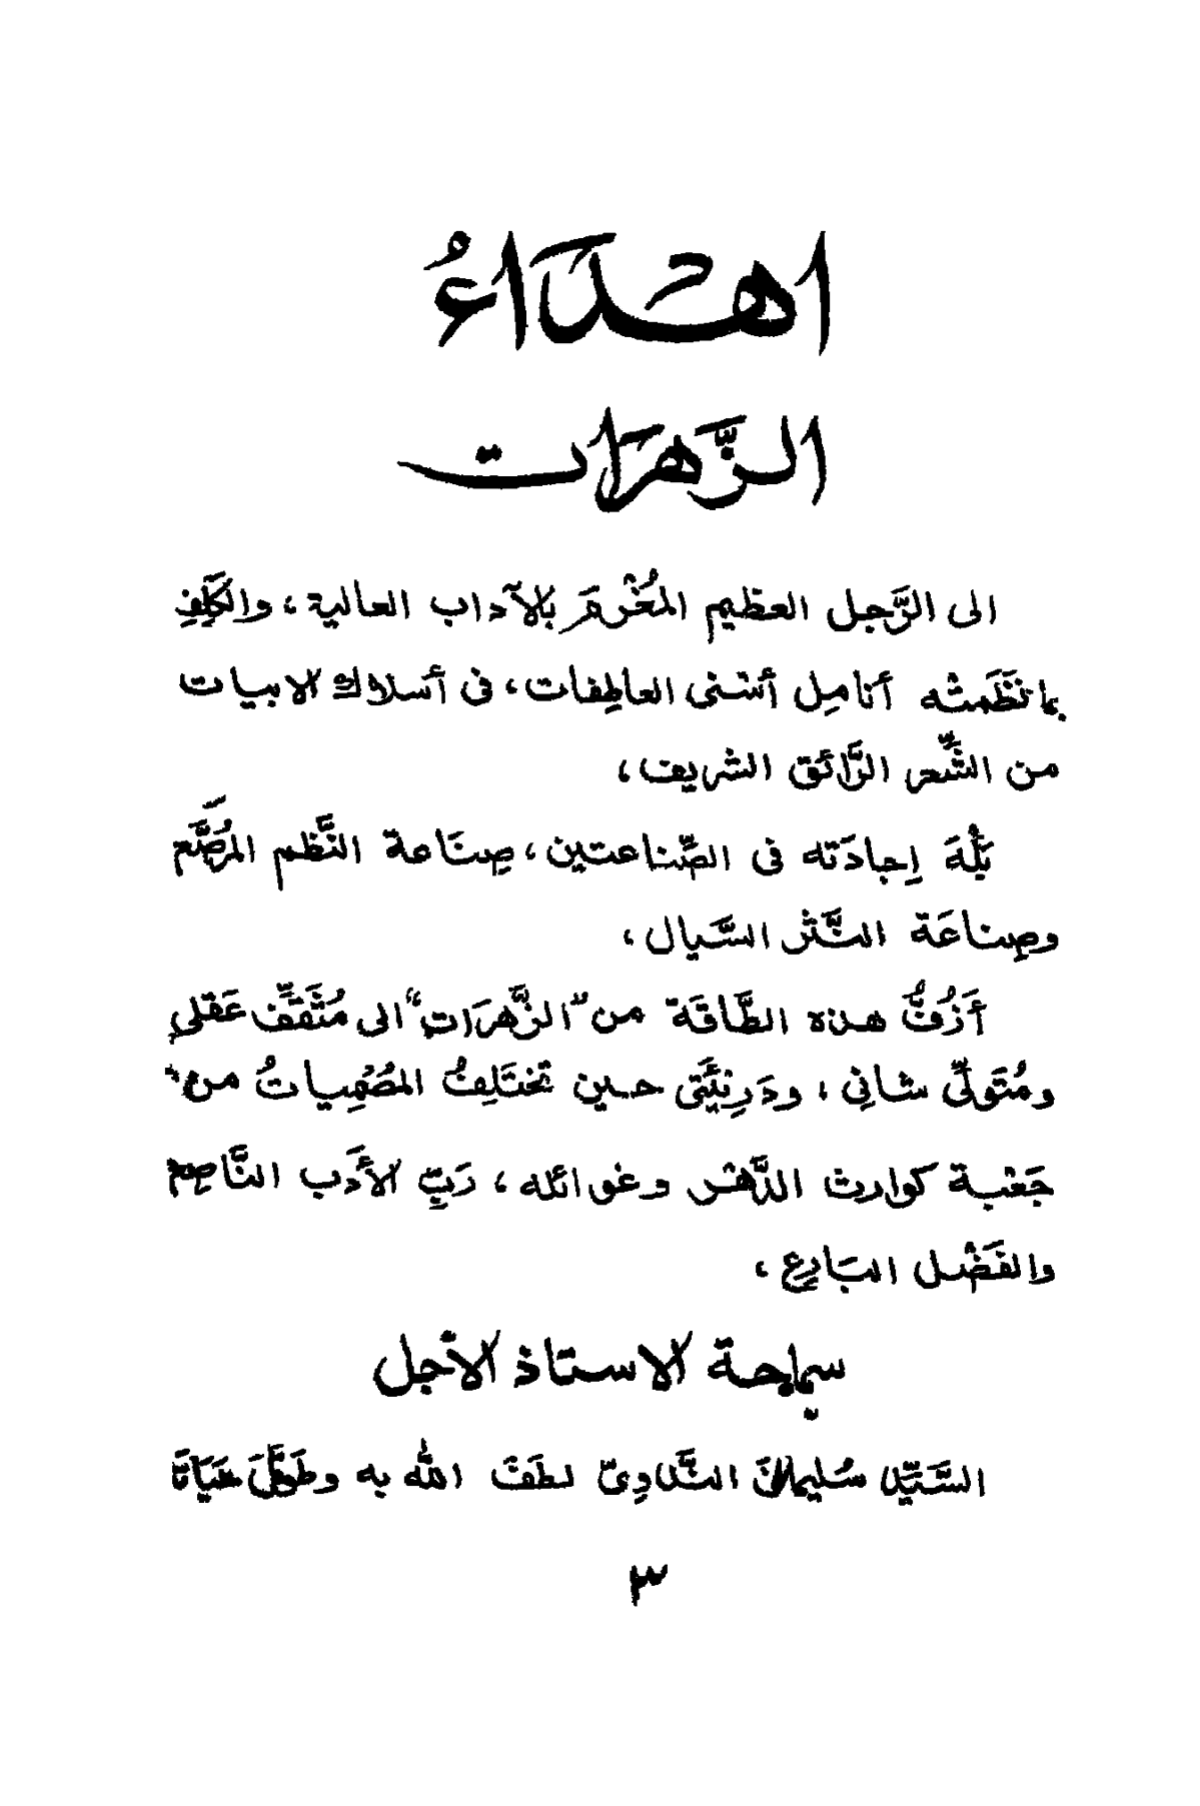 اهداءُ
الزَّهرَات
الى الرَّجل العظيم المُغْرمَ بالآداب العالية، والكَلِفِ
بما نَظَمتْه أنامِل أسْنى العاطِفات، فى أسلاك الابيات
من الشِّعر الرَّائق الشريف،
بَلْهَ اِجادَته فى الصِّناعتين، صِنَاعة النَّظم المُرَصَّع
وصِناعَة النَّثر السَّيال،
أَزُفُّ هذه الطَّاقَة من "الزَّهرَاتِ" الى مُثَقِّف عَقلى
ومُتَولِّى شانِى، ودَرِئيَّتى حين تختَلِفُ المُصْمِياتُ من
جَعْبة كوارث الدَّهْر وغوائله، رَبِّ الأَدَب النَّاصِع
والفَضْل البَارِع،
سماحة الاستاذ الأجل
السَّيِّد سُليمان النَّدْوِىّ لطَفَ اللّٰه به وطَوَّلَ حَيَاتَه
٣